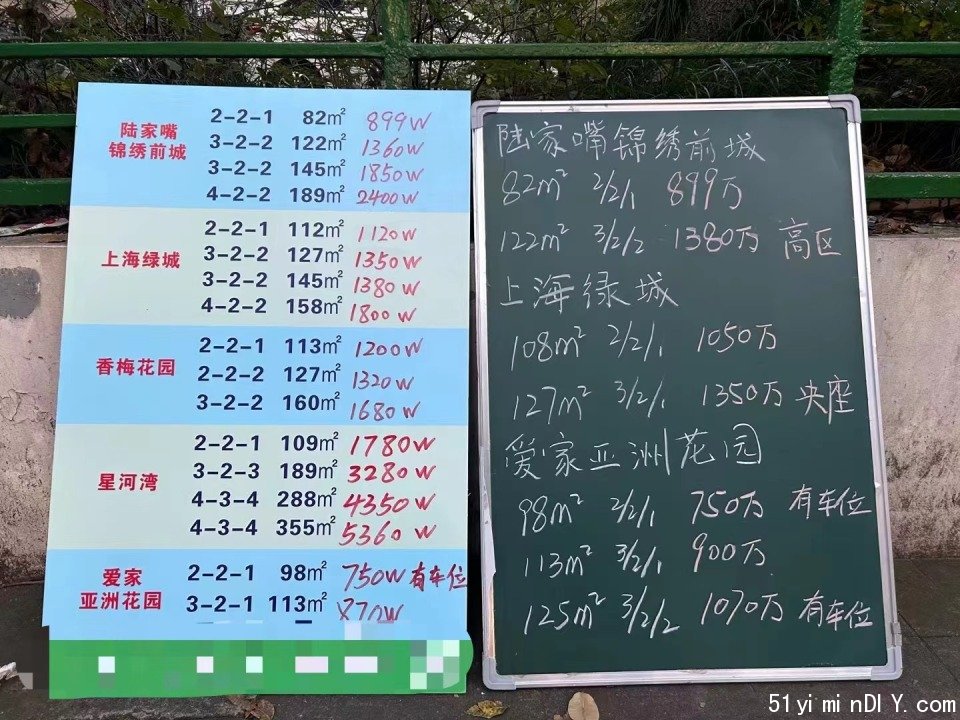 陆家嘴
锦绣前城
2-2-1 82㎡ 899W
3-2-2 122㎡ 1360W
3-2-2 145㎡ 1850W
4-2-2 189㎡ 2400W
上海绿城
2-2-1 112㎡ 1120W
3-2-2 127㎡ 1350W
3-2-2 145㎡ 1380W
4-2-2 158㎡ 1800W
香梅花园
2-2-1 113㎡ 1200W
2-2-2 127㎡ 1320W
3-2-2 160㎡ 1680W
星河湾
2-2-1 109㎡ 1780W
3-2-3 189㎡ 3280W
4-3-4 288㎡ 4350W
4-3-4 355㎡ 5360W
爱家
亚洲花园
2-2-1 98㎡ 750W 有车位
3-2-1 113㎡ 870W
陆家嘴锦绣前城
82m² 2/2/1 899万
122m² 3/2/2 1380万 高区
上海绿城
108m² 2/2/1 1050万
127m² 3/2/1 1350万 央座
爱家亚洲花园
98m² 2/2/1 750万 有车位
113m² 3/2/1 900万
125m² 3/2/2 1070万 有车位
51yiminDIY.com